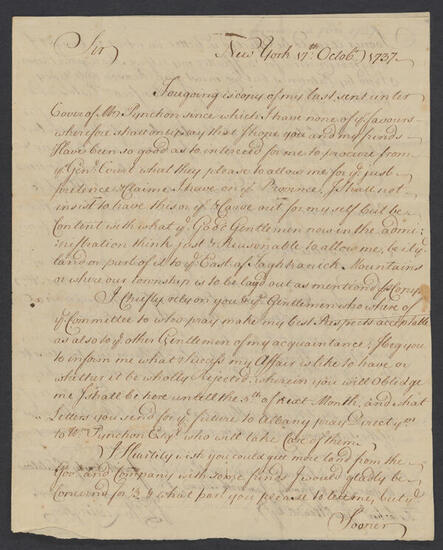 Sir New York 17th Octobr. 1737.
Foregoing is copy of my last sent under
Cover of Mr Pynchon since which I have none of yr favours
wherefore shall only say that I hope you and my friends
Have been so good as to interceed for me to procure from
ye Genl. Court what they please to allow me for ye just
pretence & Claime I have on ye Province, I shall not
insist to have this or yt & Carve out for my self but be
Content with what ye Good Gentlemen now in the admi-
nistration think just & Reasonable to allow me, be it ye
land or part of it to ye East of Taghkanick Mountains
or where our township is to be layd out as mentiond
I Chiefly rely on you & ye Gentlemen who are of
ye Committee to whom pray make my best Respects acceptable
as also to ye other Gentlemen of my acquaintance; I beg you
to inform me what success my Affair is like to have or
whether it be wholly Rejected, wherein you will oblidge
me I shall be here untill the 5th of next Month, and what
Letters you send for ye future to Albany pray Direct ym
to Wm Pynchon Esqr who will take Care of them.
I Heartily wish you could get more land from the
Govr and Company with some friends I would gladly be
Concernd for what part you please to let me, but ye
Sooner